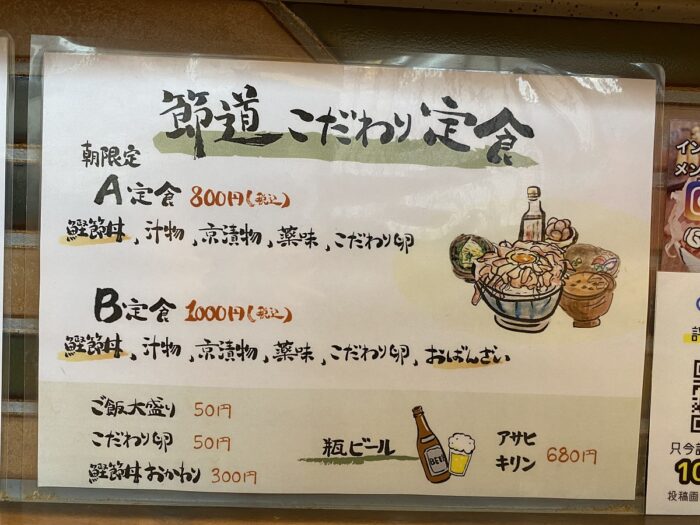 節道 こだわり定食
朝限定
A定食 800円(税込)
鰹節丼,汁物,京漬物,薬味,こだわり卵
B定食 1000円(税込)
鰹節丼,汁物,京漬物,薬味,こだわり卵,おばんざい
ご飯大盛り 50円
こだわり卵 50円
鰹節丼おかわり 300円
瓶ビール
BEER
アサヒ
キリン 680円
イン
メン
只今
10
投稿画